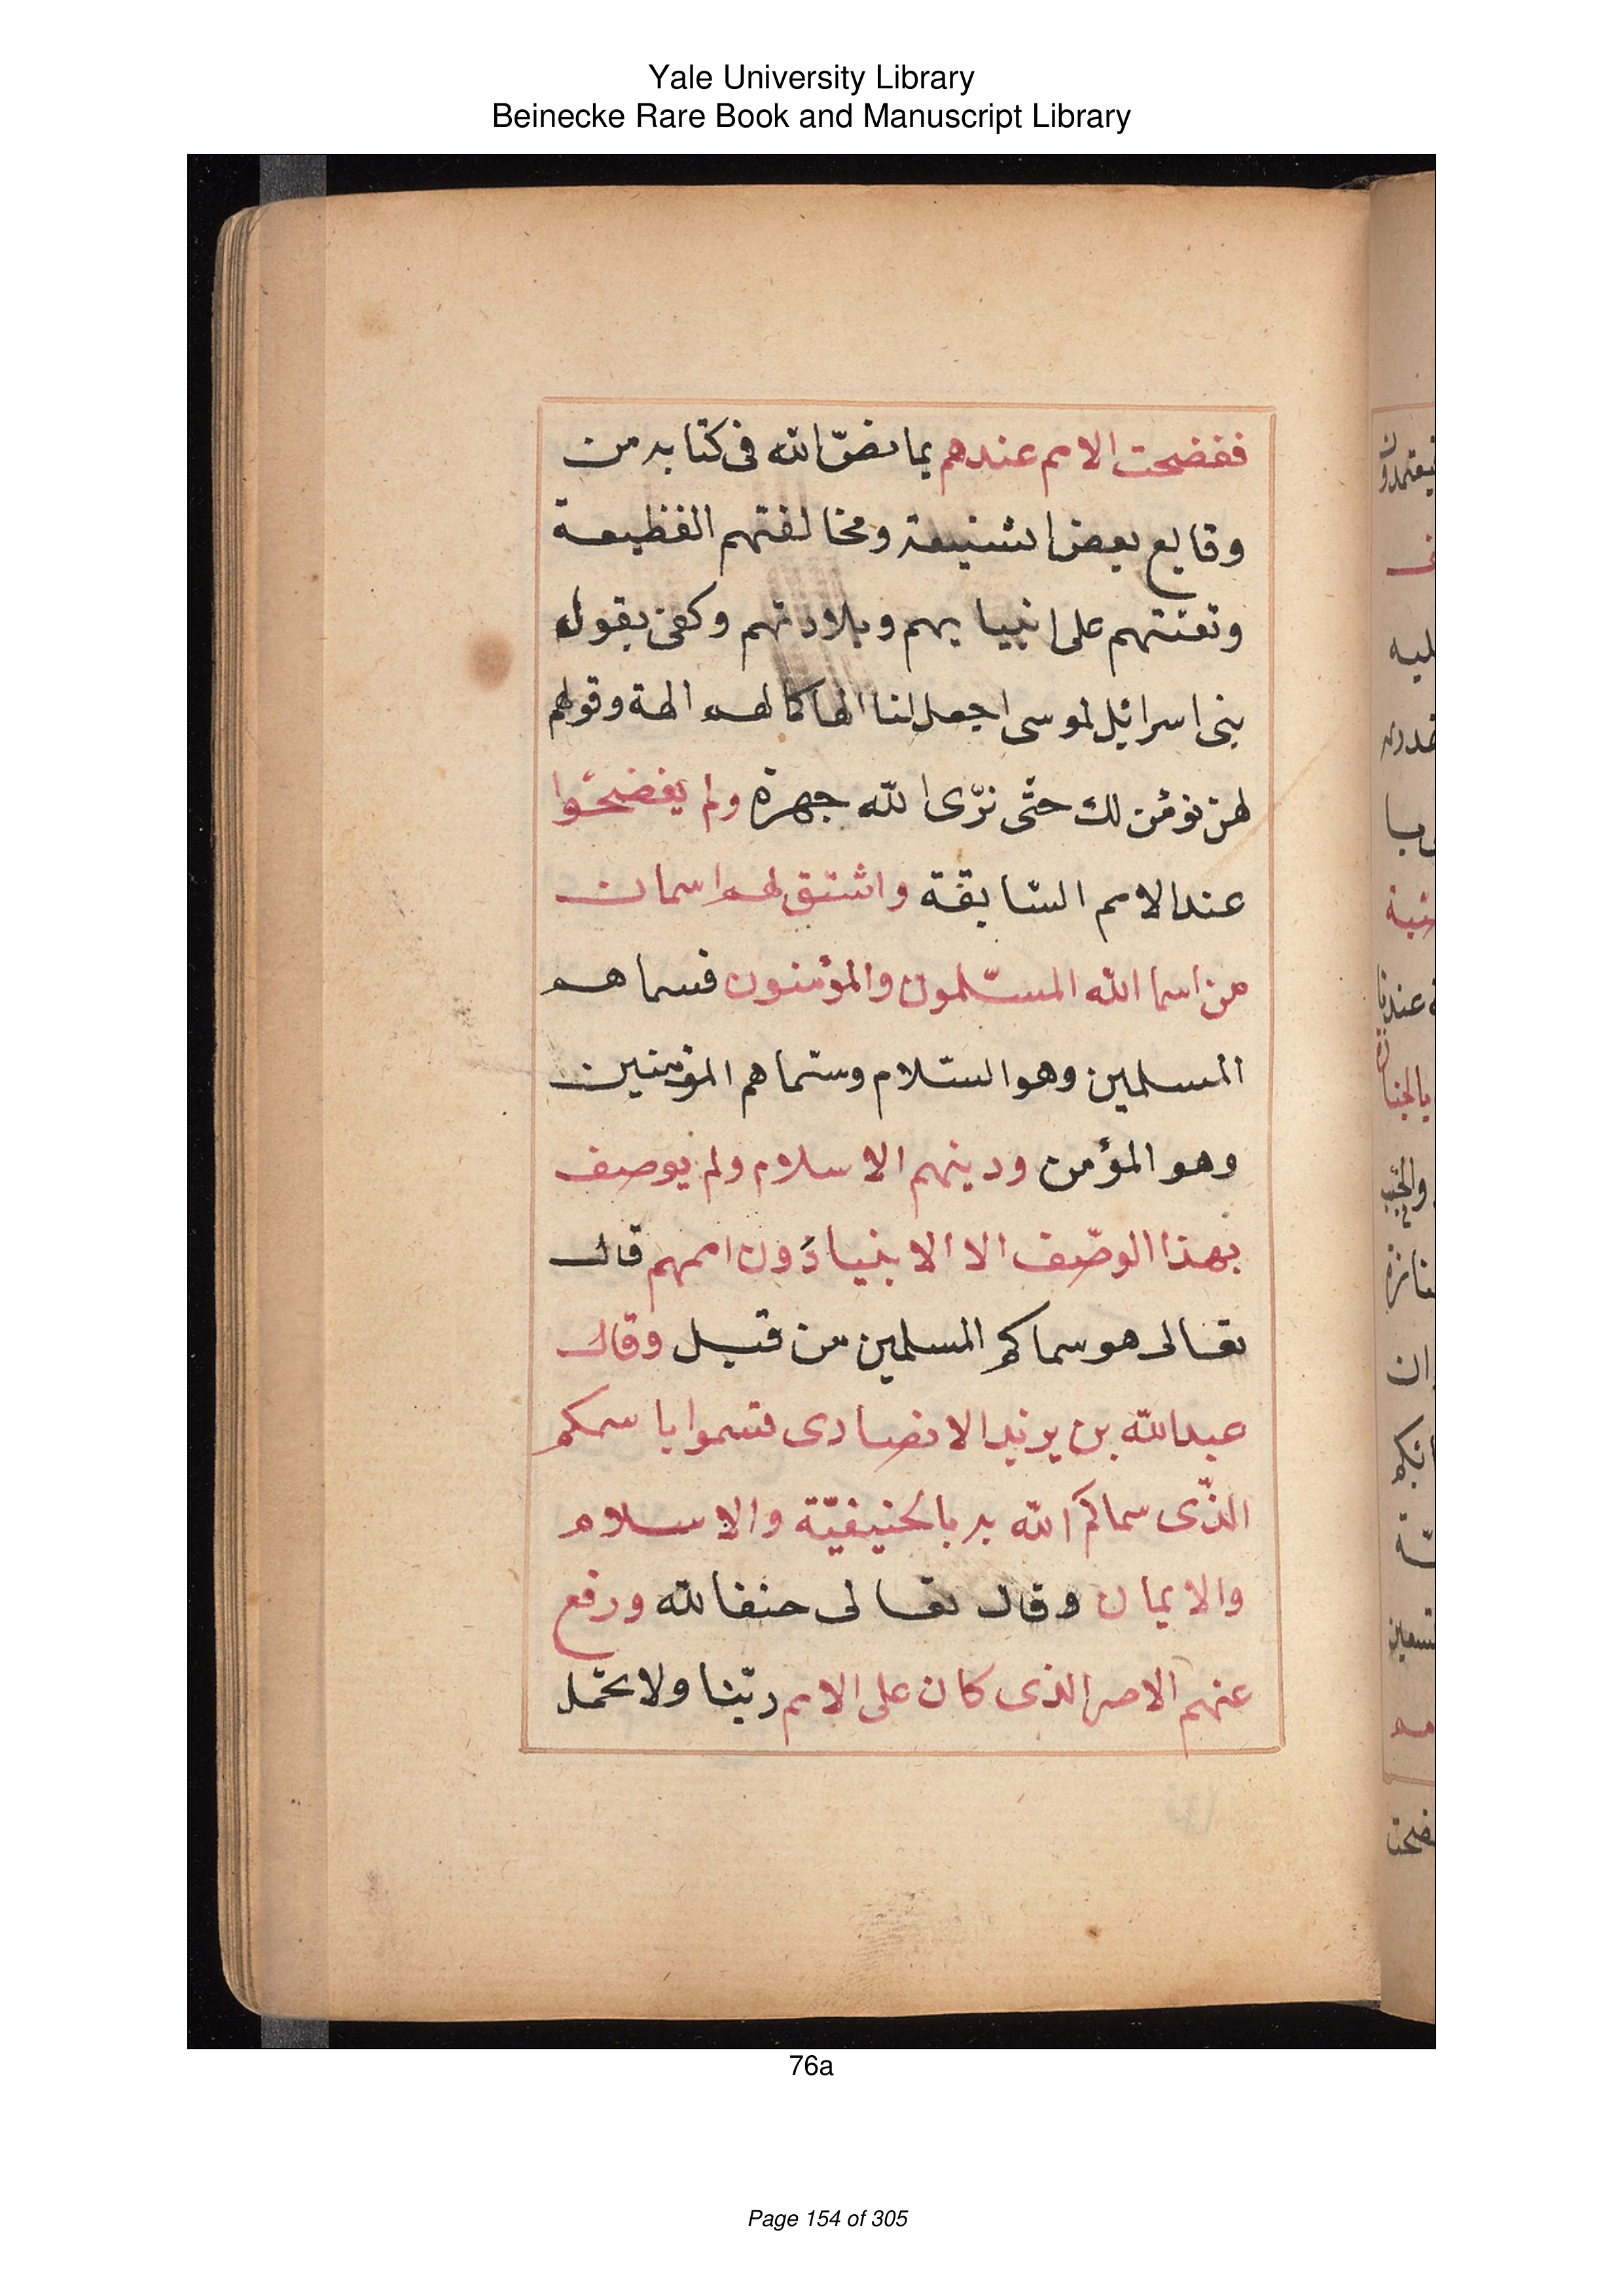 Yale University Library
Beinecke Rare Book and Manuscript Library
ففضحت الامم عندهم بما نصّ الله فى كتابه من
وقايع بعض الشنيعة ومخالفتهم الفظيعة
وتعنتهم على انبيايهم وبلادتهم وكفى بقول
بنى اسرائيل لموسى اجعل لنا الها كما لهم الهة وقولهم
لن نؤمن لك حتّى نرى الله جهرة ولم يفضحوا
عند الامم السّابقة واشتق لهم اسمان
من اسما الله المسلمون والمؤمنون فسماهم
المسلمين وهو السّلام وسمّاهم المؤمنين
وهو المؤمن ودينهم الاسلام ولم يوصف
بهذا الوصف الا الانبيا دون اممهم قال
تعالى هو سماكم المسلمين من قبل وقال
عبد الله بن يزيد الانصارى فتسموا باسمكم
الذّى سماكم الله به بالحنيفيّة والاسلام
والايمان وقال تعالى حنفا لله ورفع
عنهم الاصر الذى كان على الامم ربّنا ولا تحمل
76a
Page 154 of 305